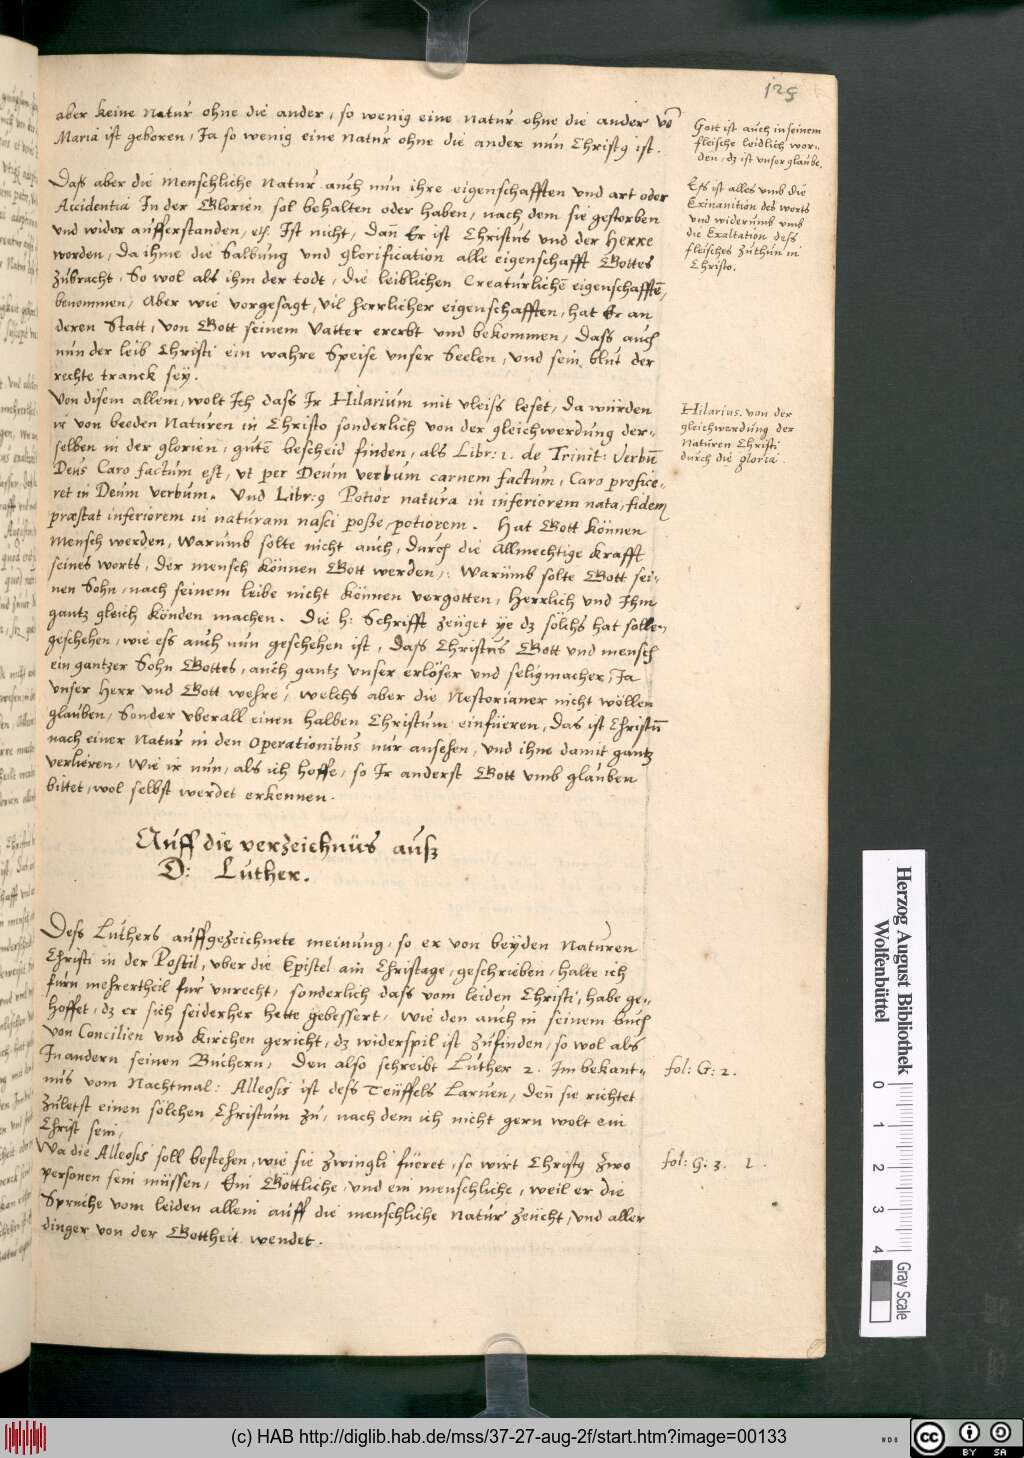 125
aber keine Natur ohne die ander, so wenig eine natur ohne die ander võ
Maria ist geboren, Ja so wenig eine natur ohne die ander nun Christ9 ist.
Gott ist auch in seinem
fleische leidlich wor-
den, dz ist unser glaube.
Dass aber die Menschliche Natur auch nun ihre eigenschafften und art oder
Accidentia In der Glorien sol behalten oder haben, nach dem sie gestorben
und wider aufferstanden, etc. Ist nicht, dañ Er ist Christus und der Herre
worden, Da ihme die Salbung und glorification alle eigenschafft Gottes
zubracht, So wol als ihm der todt, die leiblichen Creaturlichẽ eigenschafftẽ,
benommen, Aber wie vorgesagt, vil herrlicher eigenschafften, hat Er an
deren Statt, von Gott seinem Vatter ererbt und bekommen, Dass auch
nun der leib Christi ein wahre Speise unser Seelen, und sein blut der
rechte tranck sey.
Ess ist alles umb die
Exinanition des worts
und widerumb umb
die Exaltation dess
fleisches zuthun in
Christo.
Von disem allem, wolt Ich dass Ir Hilarium mit vleiss leset, da würden
ir von beeden Naturen in Christo sonderlich von der gleichwerdung der-
selben in der glorien, gutẽ bescheid finden, als Libr: 1. de Trinit: Verbũ
Deus Caro factum est, ut per Deum verbum carnem factum, Caro profice-
ret in Deum verbum. Und Libr: 9 Potior natura in inferiorem nata, fidem
præstat inferiorem in naturam nasci posse potiorem. Hat Gott können
Mensch werden, warumb solte nicht auch, durch die Allmechtige krafft
seines worts, der mensch können Gott werden, : Warumb solte Gott sei-
nen Sohn, nach seinem leibe nicht können vergotten, herrlich und Ihm
gantz gleich könden machen. Die h: Schrifft zeuget ye dz sölchs hat sollen
geschehen, wie ess auch nun geschehen ist, Dass Christus Gott und mensch
ein gantzer Sohn Gottes, auch gantz unser erlöser und seligmacher, Ja
unser Herr und Gott wehre, welchs aber die Nestorianer nicht wöllen
glauben, Sonder uberall einen halben Christum einfüeren, das ist Christũ
nach einer Natur in den operationibus nur ansehen, und ihne damit gantz
verlieren, Wie ir nun, als ich hoffe, so Ir anderst Gott umb glauben
bittet, wol selbst werdet erkennen.
Hilarius. von der
gleichwerdung der
Naturen Christi
durch die gloria
Auff die verzeichnüs auss
D: Luther.
Dess Luthers auffgezeichnete meinung, so er von beyden Naturen
Christi in der Postil, uber die Epistel am Christage, geschrieben, halte ich
furn mehrertheil fur unrecht, sonderlich dass vom leiden Christi, habe ge-
hoffet, dz er sich seiderher hette gebessert, wie den auch in seinem buch
von Concilien und kirchen gericht, dz widerspil ist zufinden, so wol als
In andern seinen Büchern, Den also schreibt Luther 2. Im bekant-
nus vom Nachtmal: Alleosis ist dess Teüffels Larven, Deñ sie richtet
zuletst einen sölchen Christum zu, nach dem ich nicht gern wolt ein
Christ sein,
fol: G: 2.
Wa die Alleosis soll bestehen, wie sie Zwingli füeret, so wirt Christ9 zwo
personen sein müssen, Ein Göttliche, und ein menschliche, weil er die
Sprüche vom leiden allein auff die menschliche Natur zeücht, und aller
dinger von der Gottheit wendet.
fol: G: 3. 1.
Herzog August Bibliothek
Wolfenbüttel
0 1 2 3 4
Gray Scale
(c) HAB http://diglib.hab.de/mss/37-27-aug-2f/start.htm?image=00133
WDB
cc BY SA